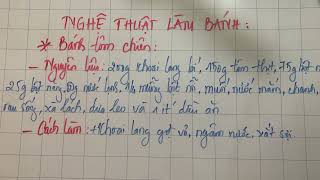 NGHỆ THUẬT LÀM BÁNH:
* Bánh tôm chiên:
- Nguyên liệu: 200g khoai lang bí, 150g tôm thịt, 75g bột
25g bột năng, nước lạnh, muỗng bột nổi, muối, nước mắm, chanh,
rau sống, xà lách, dưa leo và 1 ít dầu ăn
- Cách làm: + Khoai lang gọt vỏ, ngâm nước, xắt sợi